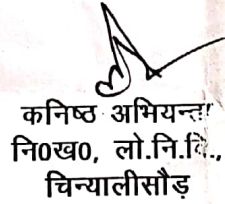 कनिष्ठ अभियन्ता
नि0ख0, लो.नि.वि.,
चिन्यालीसौड़